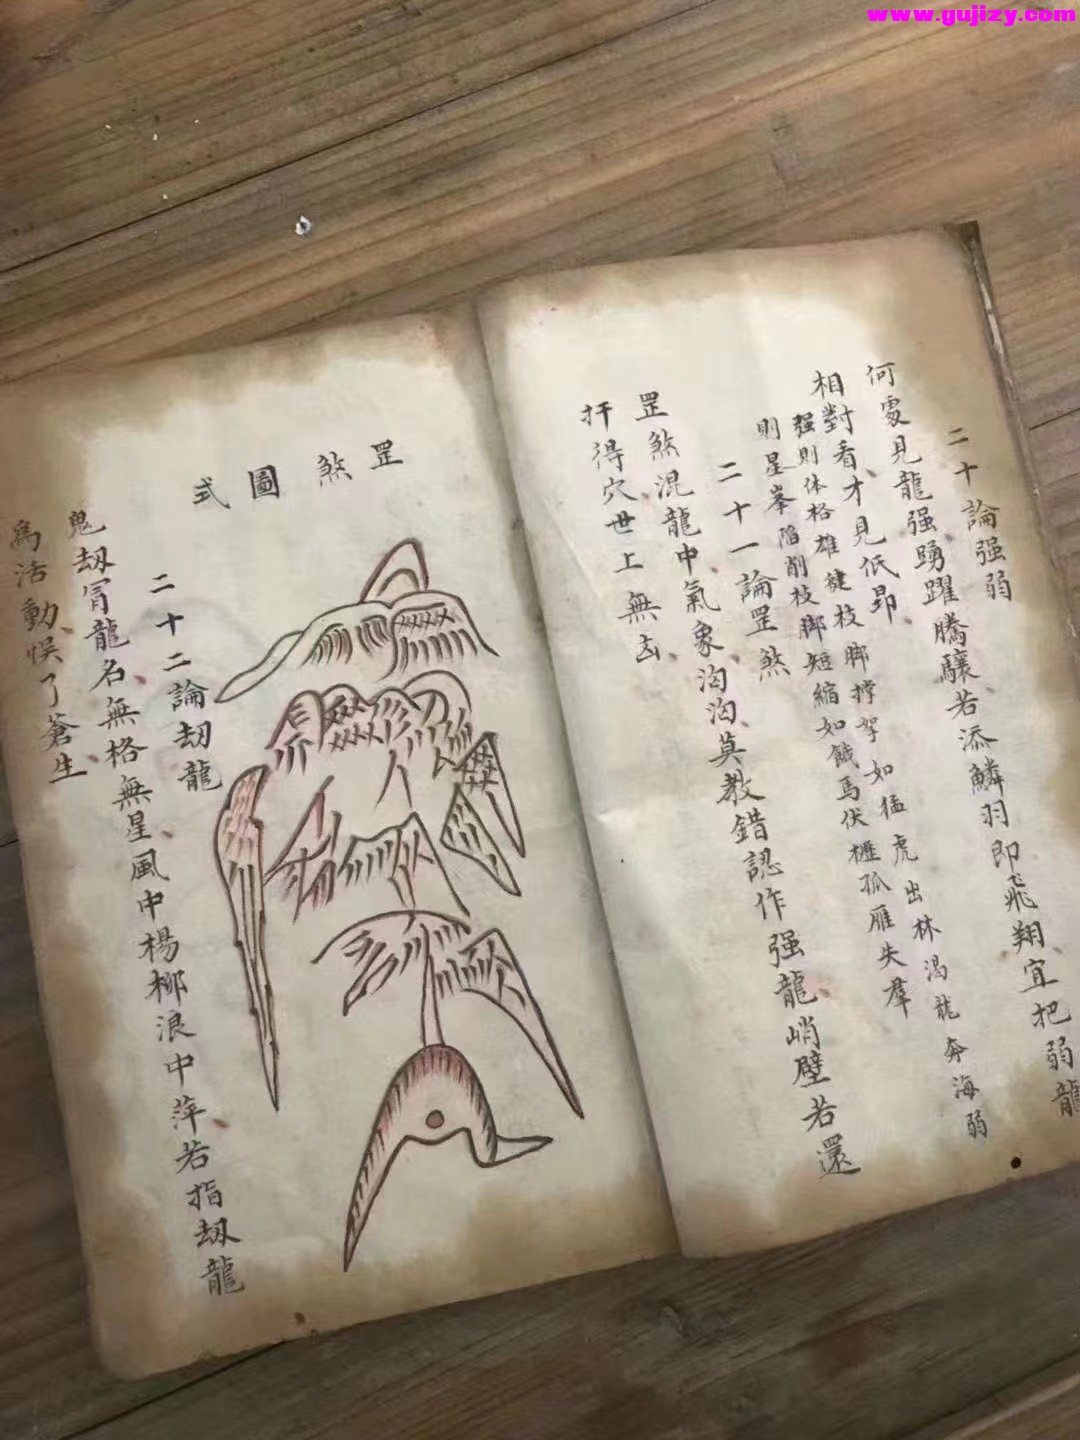 www.gujizy.com
二十論强弱
何處見龍强踴躍騰驤若添鱗羽即飛翔宜把弱龍
相對看才見低昻
强則体格雄徤枝脚撑拏如猛虎出林渴龍奔海弱
則星峯陷削枝脚短縮如餓馬伏櫪孤雁失羣
二十一論罡煞
罡煞混龍中氣象洶洶莫教錯認作强龍峭壁若還
扦得穴世上無凶
罡煞圖式
二十二論刼龍
鬼刼冐龍名無格無星風中楊柳浪中萍若指刼龍
爲活動悞了蒼生